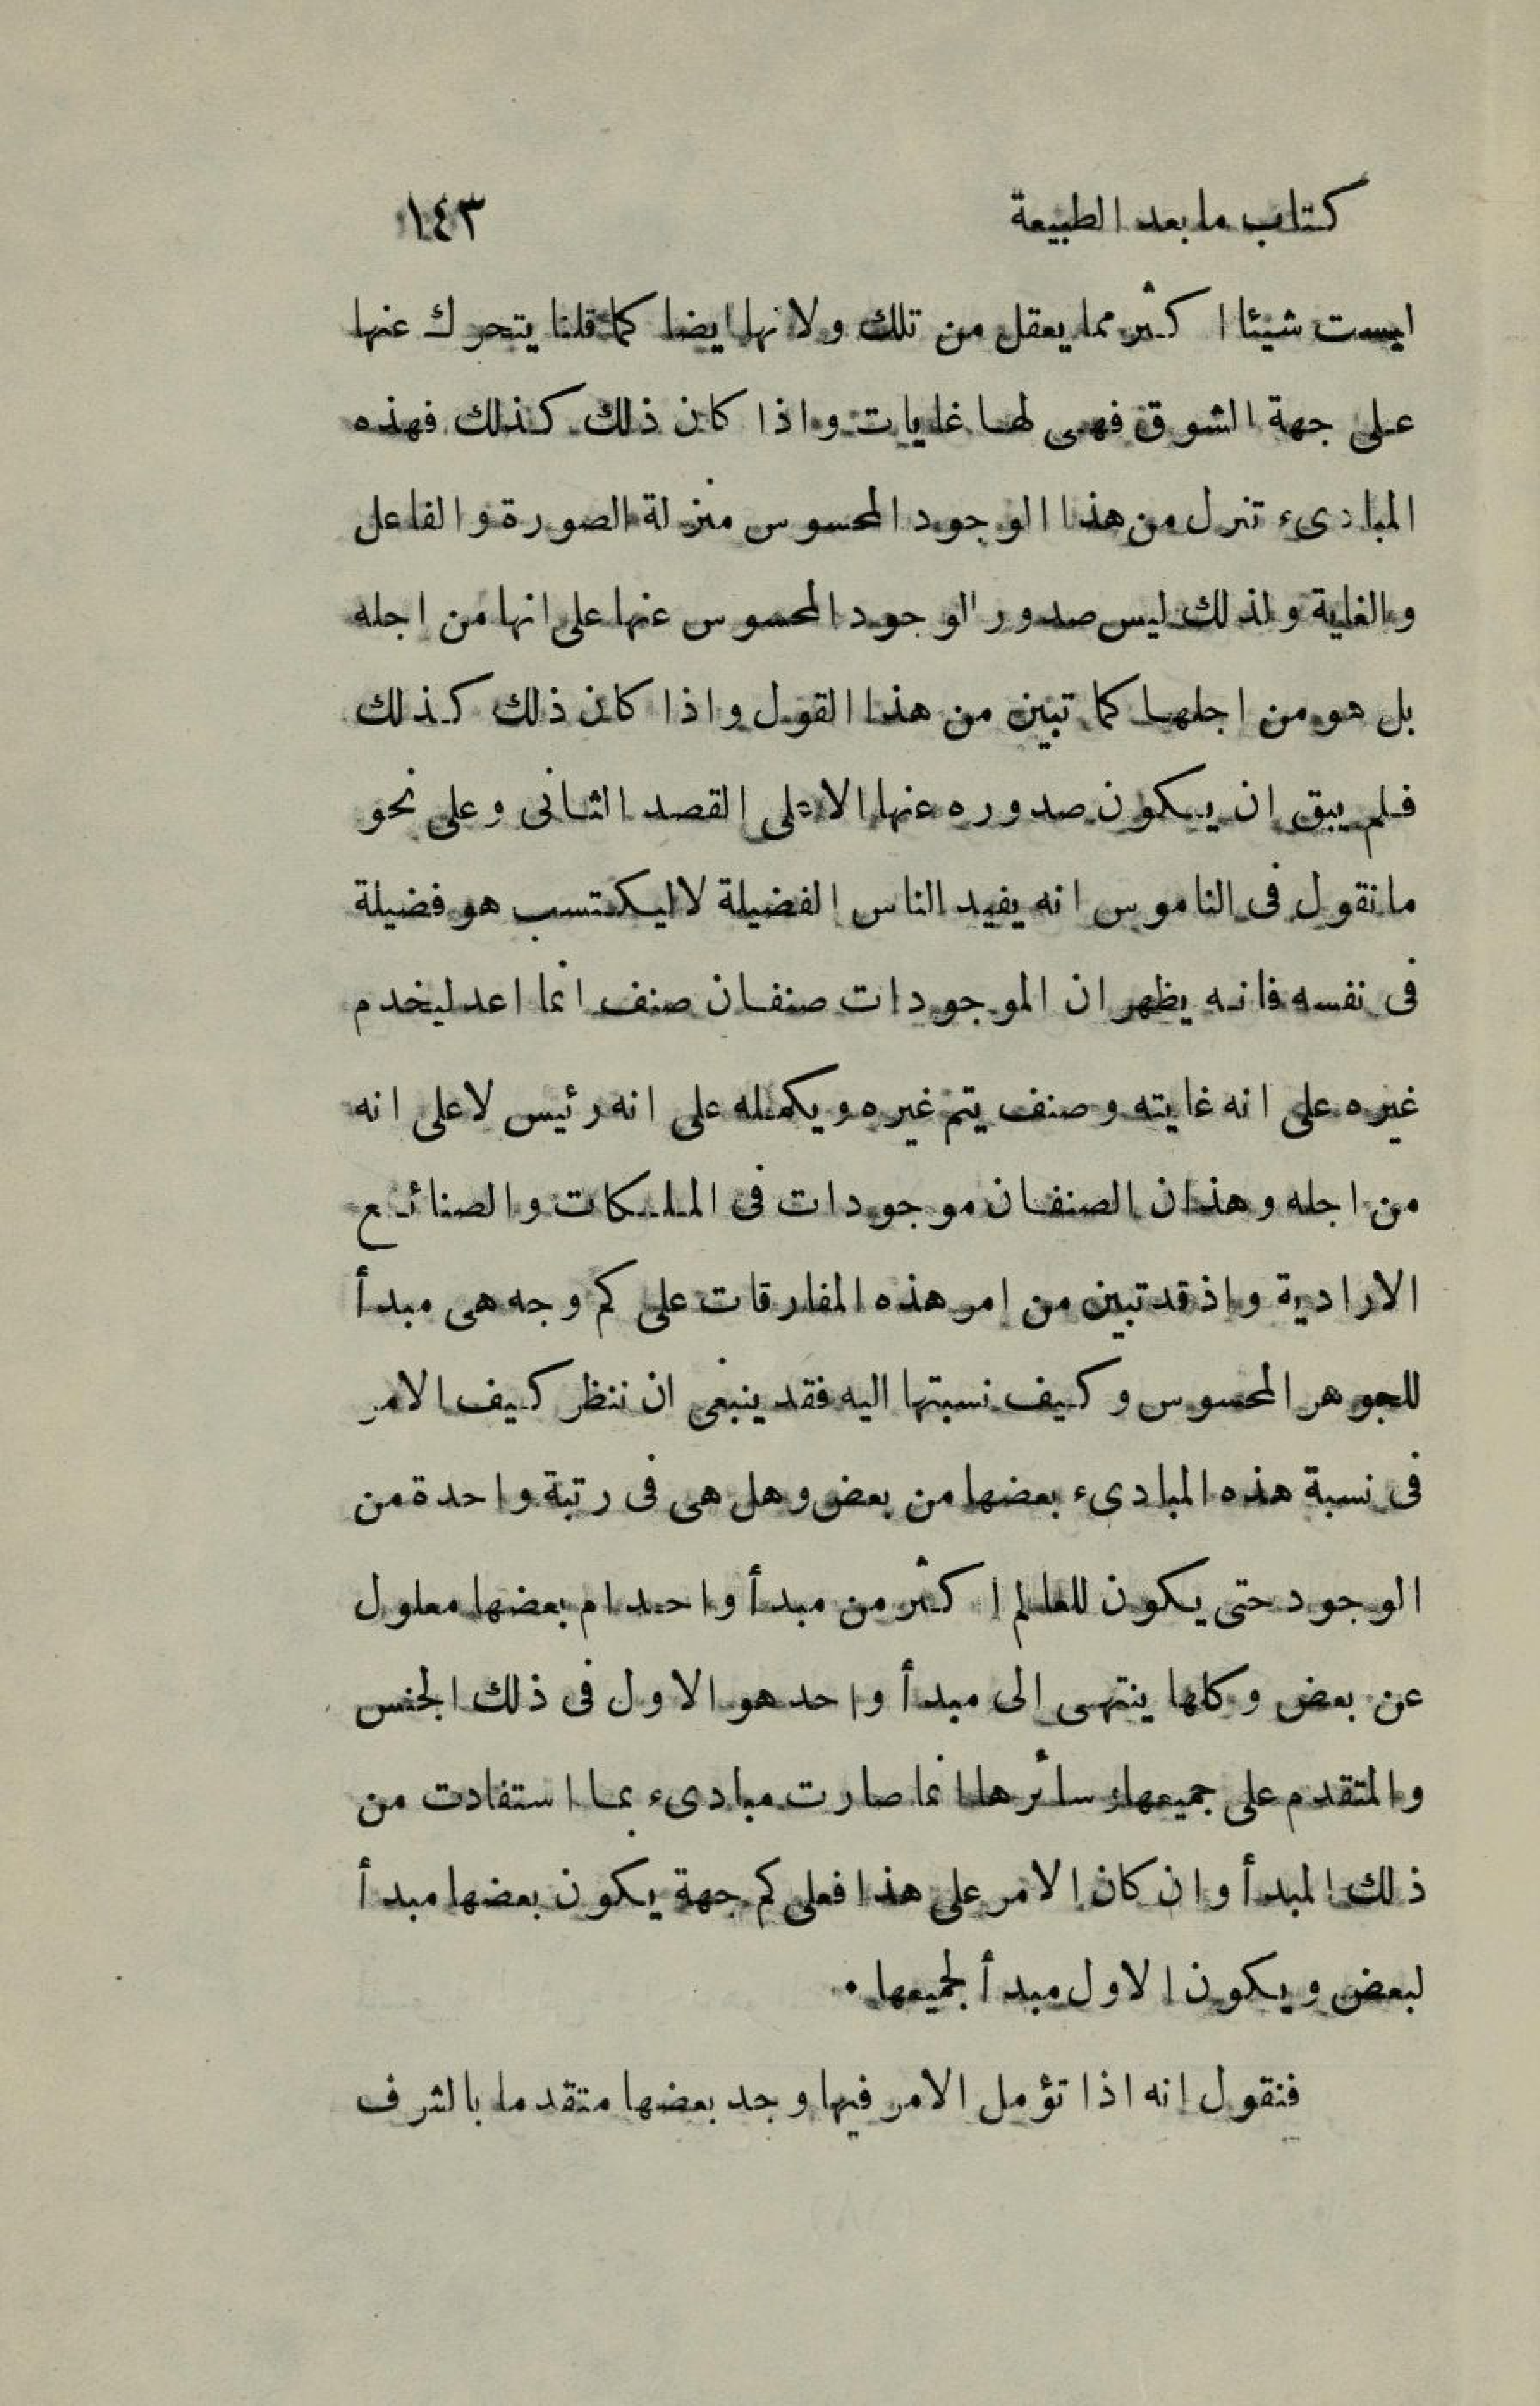 كتاب ما بعد الطبيعة ١٤٣
ليست شيئا اكثر مما يعقل من تلك ولانها ايضا كما قلنا يتحرك عنها
على جهة الشوق فهى لها غايات واذا كان ذلك كذلك فهذه
المبادىء تنزل من هذا الوجود المحسوس منزلة الصورة والفاعل
والغاية ولذلك ليس صدور الوجود المحسوس عنها على انها من اجله
بل هو من اجلها كما تبين من هذا القول واذا كان ذلك كذلك
فلم يبق ان يكون صدوره عنها الا على القصد الثانى وعلى نحو
ما نقول فى الناموس انه يفيد الناس الفضيلة لا ليكتسب هو فضيلة
فى نفسه فانه يظهر ان الموجودات صنفان صنف انما اعد ليخدم
غيره على انه غايته وصنف يتم غيره ويكمله على انه رئيس لا على انه
من اجله وهذان الصنفان موجودات فى الملكات والصنائع
الارادية واذ قد تبين من امر هذه المفارقات على كم وجه هى مبدأ
للجوهر المحسوس وكيف نسبتها اليه فقد ينبغى ان ننظر كيف الامر
فى نسبة هذه المبادىء بعضها من بعض وهل هى فى رتبة واحدة من
الوجود حتى يكون للعالم اكثر من مبدأ واحد ام بعضها معلول
عن بعض وكلها ينتهى الى مبدأ واحد هو الاول فى ذلك الجنس
والمتقدم على جميعها وسائرها انما صارت مبادىء بما استفادت من
ذلك المبدأ وان كان الامر على هذا فعلى كم جهة يكون بعضها مبدأ
لبعض ويكون الاول مبدأ لجميعها .
فنقول انه اذا تؤمل الامر فيها وجد بعضها متقدما بالشرف